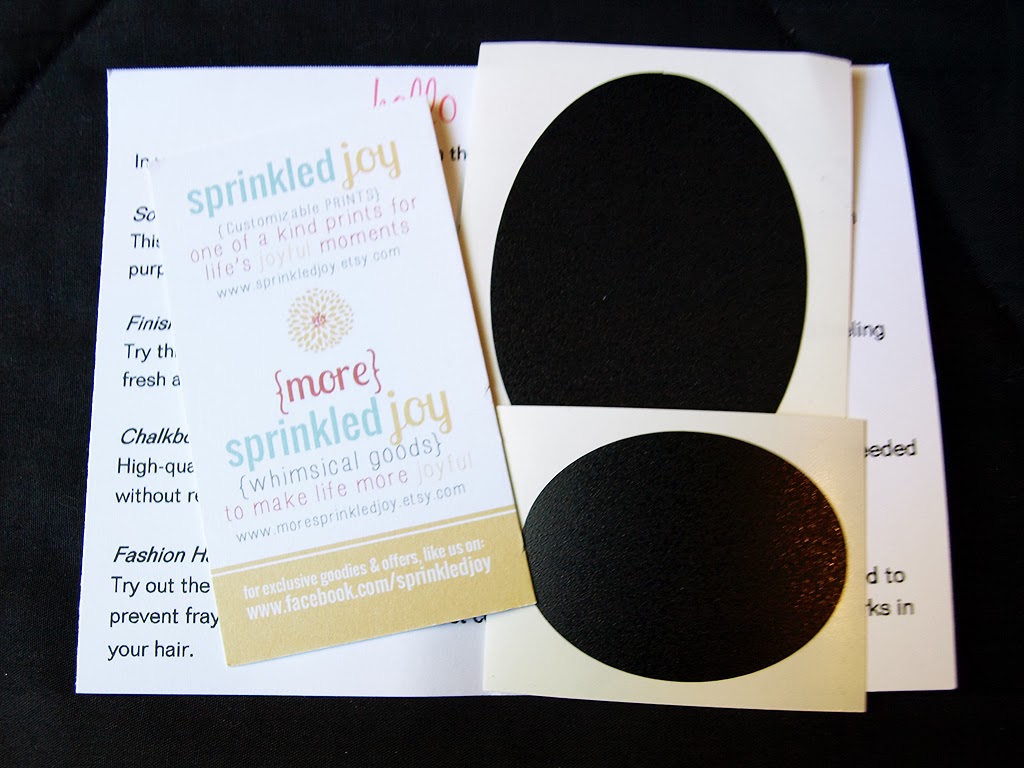 hello
In
th
So
This
purp
Finish
Try th
eling
fresh a
Chalkbo
High-qua
eeded
without re
Fashion Ha
Try out the
d to
prevent fray
rks in
your hair.
sprinkled joy
{Customizable PRINTS}
one of a kind prints for
life's joyful moments
www.sprinkledjoy.etsy.com
{more}
sprinkled joy
{whimsical goods}
to make life more joyful
www.moresprinkledjoy.etsy.com
for exclusive goodies & offers, like us on:
www.facebook.com/sprinkledjoy